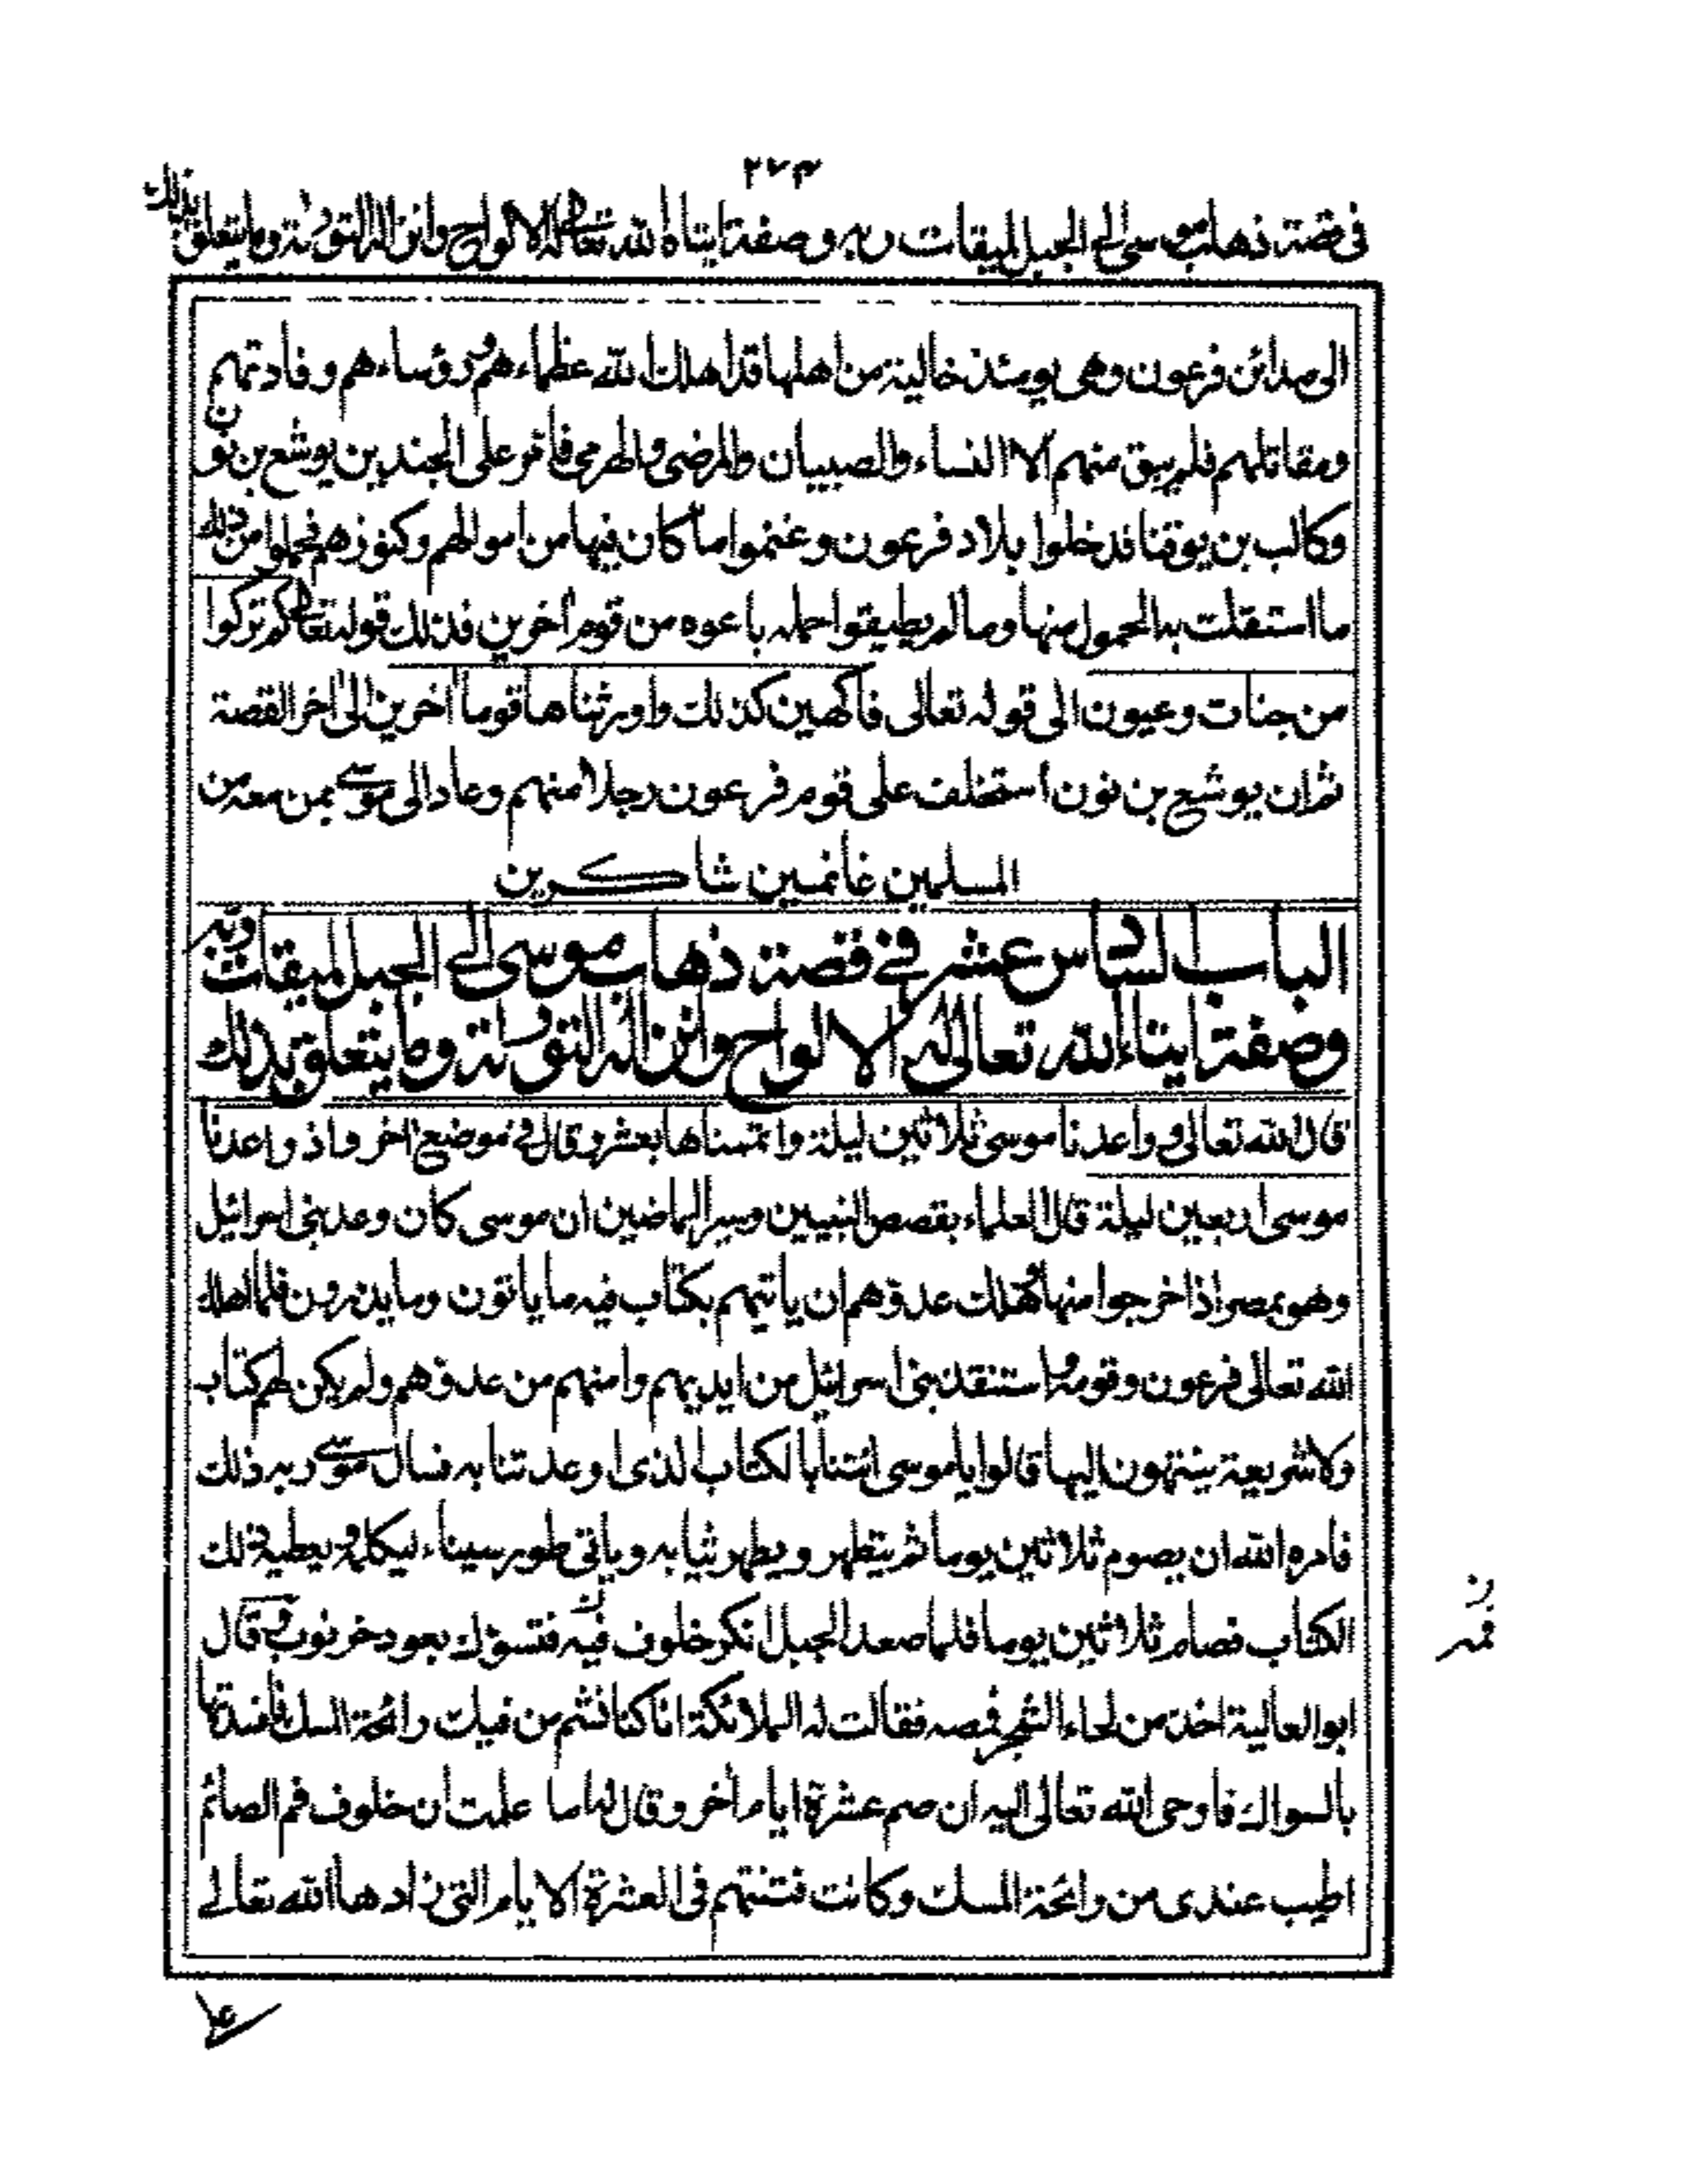 ٢٧٣
فى قصة ذهاب موسى الى الجبل لميقات ربه وصفة ايتاء الله تعالى له الالواح وانزاله التورٰىة وما يتعلق بذلك
الى مدائن فرعون وهى يومئذ خالية من اهلها قد اهلك الله عظماءهم ورؤساءهم وقادتهم
ومقاتلهم فلم يبق منهم الا النساء والصبيان والمرضى والهرمى فامّر على الجندين يوشع بن نون
وكالب بن يوقنا فدخلوا بلاد فرعون وغنموا ما كان فيها من اموالهم وكنوزهم فحملوا من ذلك
ما استقلت به الحمول منها وما لم يطيقوا حمله باعوه من قوم اٰخرين فذلك قوله تعالى كم تركوا
من جنات وعيون الى قوله تعالى فاكهين كذلك واورثناها قوما اٰخرين الى اٰخر القصة
ثم ان يوشع بن نون استخلف على قوم فرعون رجلا منهم وعاد الى موسى بمن معه من
المسلمين غانمين شاكرين
الباب السادس عشر فى قصة ذهاب موسى الى الجبل لميقات ربه
وصفة ايتاء الله تعالى له الالواح وانزاله التورٰىة وما يتعلق بذلك
قال الله تعالى وواعدنا موسى ثلاثين ليلة واتممناها بعشر وقال فى موضع اٰخر واذ واعدنا
موسى اربعين ليلة قال العلماء بقصص النبيين وسير الماضين ان موسى كان وعد بنى اسرائيل
وهو بمصر اذا خرجوا منها وهلك عدوّهم ان ياتيهم بكتاب فيه ما ياتون وما يذرون فلما اهلك
الله تعالى فرعون وقومه واستنقذ بنى اسرائيل من ايديهم وامنهم من عدوّهم ولم يكن لهم كتاب
ولا شريعة ينتهون اليها قالوا يا موسى ائتنا بالكتاب الذى اوعدتنا به فسال موسى ربه ذلك
فامره الله ان يصوم ثلاثين يوما ثم يتطهر ويطهر ثيابه وياتى طور سيناء ليكلمه ويعطيه ذلك
الكتاب فصام ثلاثين يوما فلما صعد الجبل انكر خلوف فيه فتسوّك بعود خرنوب قال
ن
فمه
ابو العالية اخذ من لحاء الشجر فمصه فقالت له الملائكة انا كنا نشم من فيك رائحة المسك فافسدتها
بالسواك فاوحى الله تعالى اليه ان صم عشرة ايام اٰخر وقال له اما علمت ان خلوف فم الصائم
اطيب عندى من رائحة المسك وكانت فتنتهم فى العشرة الايام التى زادها الله تعالى